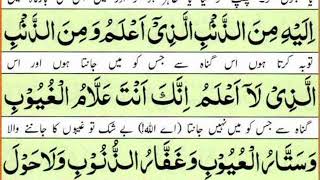 اِلَيْهِ مِنَ الذَّنْۢبِ الَّذِيْٓ اَعْلَمُ وَمِنَ الذَّنْۢبِ
توبہ کرتا ہوں اس گناہ سے جس کو میں جانتا ہوں اور اس
الَّذِيْ لَآ اَعْلَمُ اِنَّكَ اَنْتَ عَلَّامُ الْغُيُوْبِ
گناہ سے جس کو میں نہیں جانتا (اے اللہ!) بے شک تو غیبوں کا جاننے والا
وَسَتَّارُ الْعُيُوْبِ وَغَفَّارُ الذُّنُوْبِ وَلَا حَوْلَ